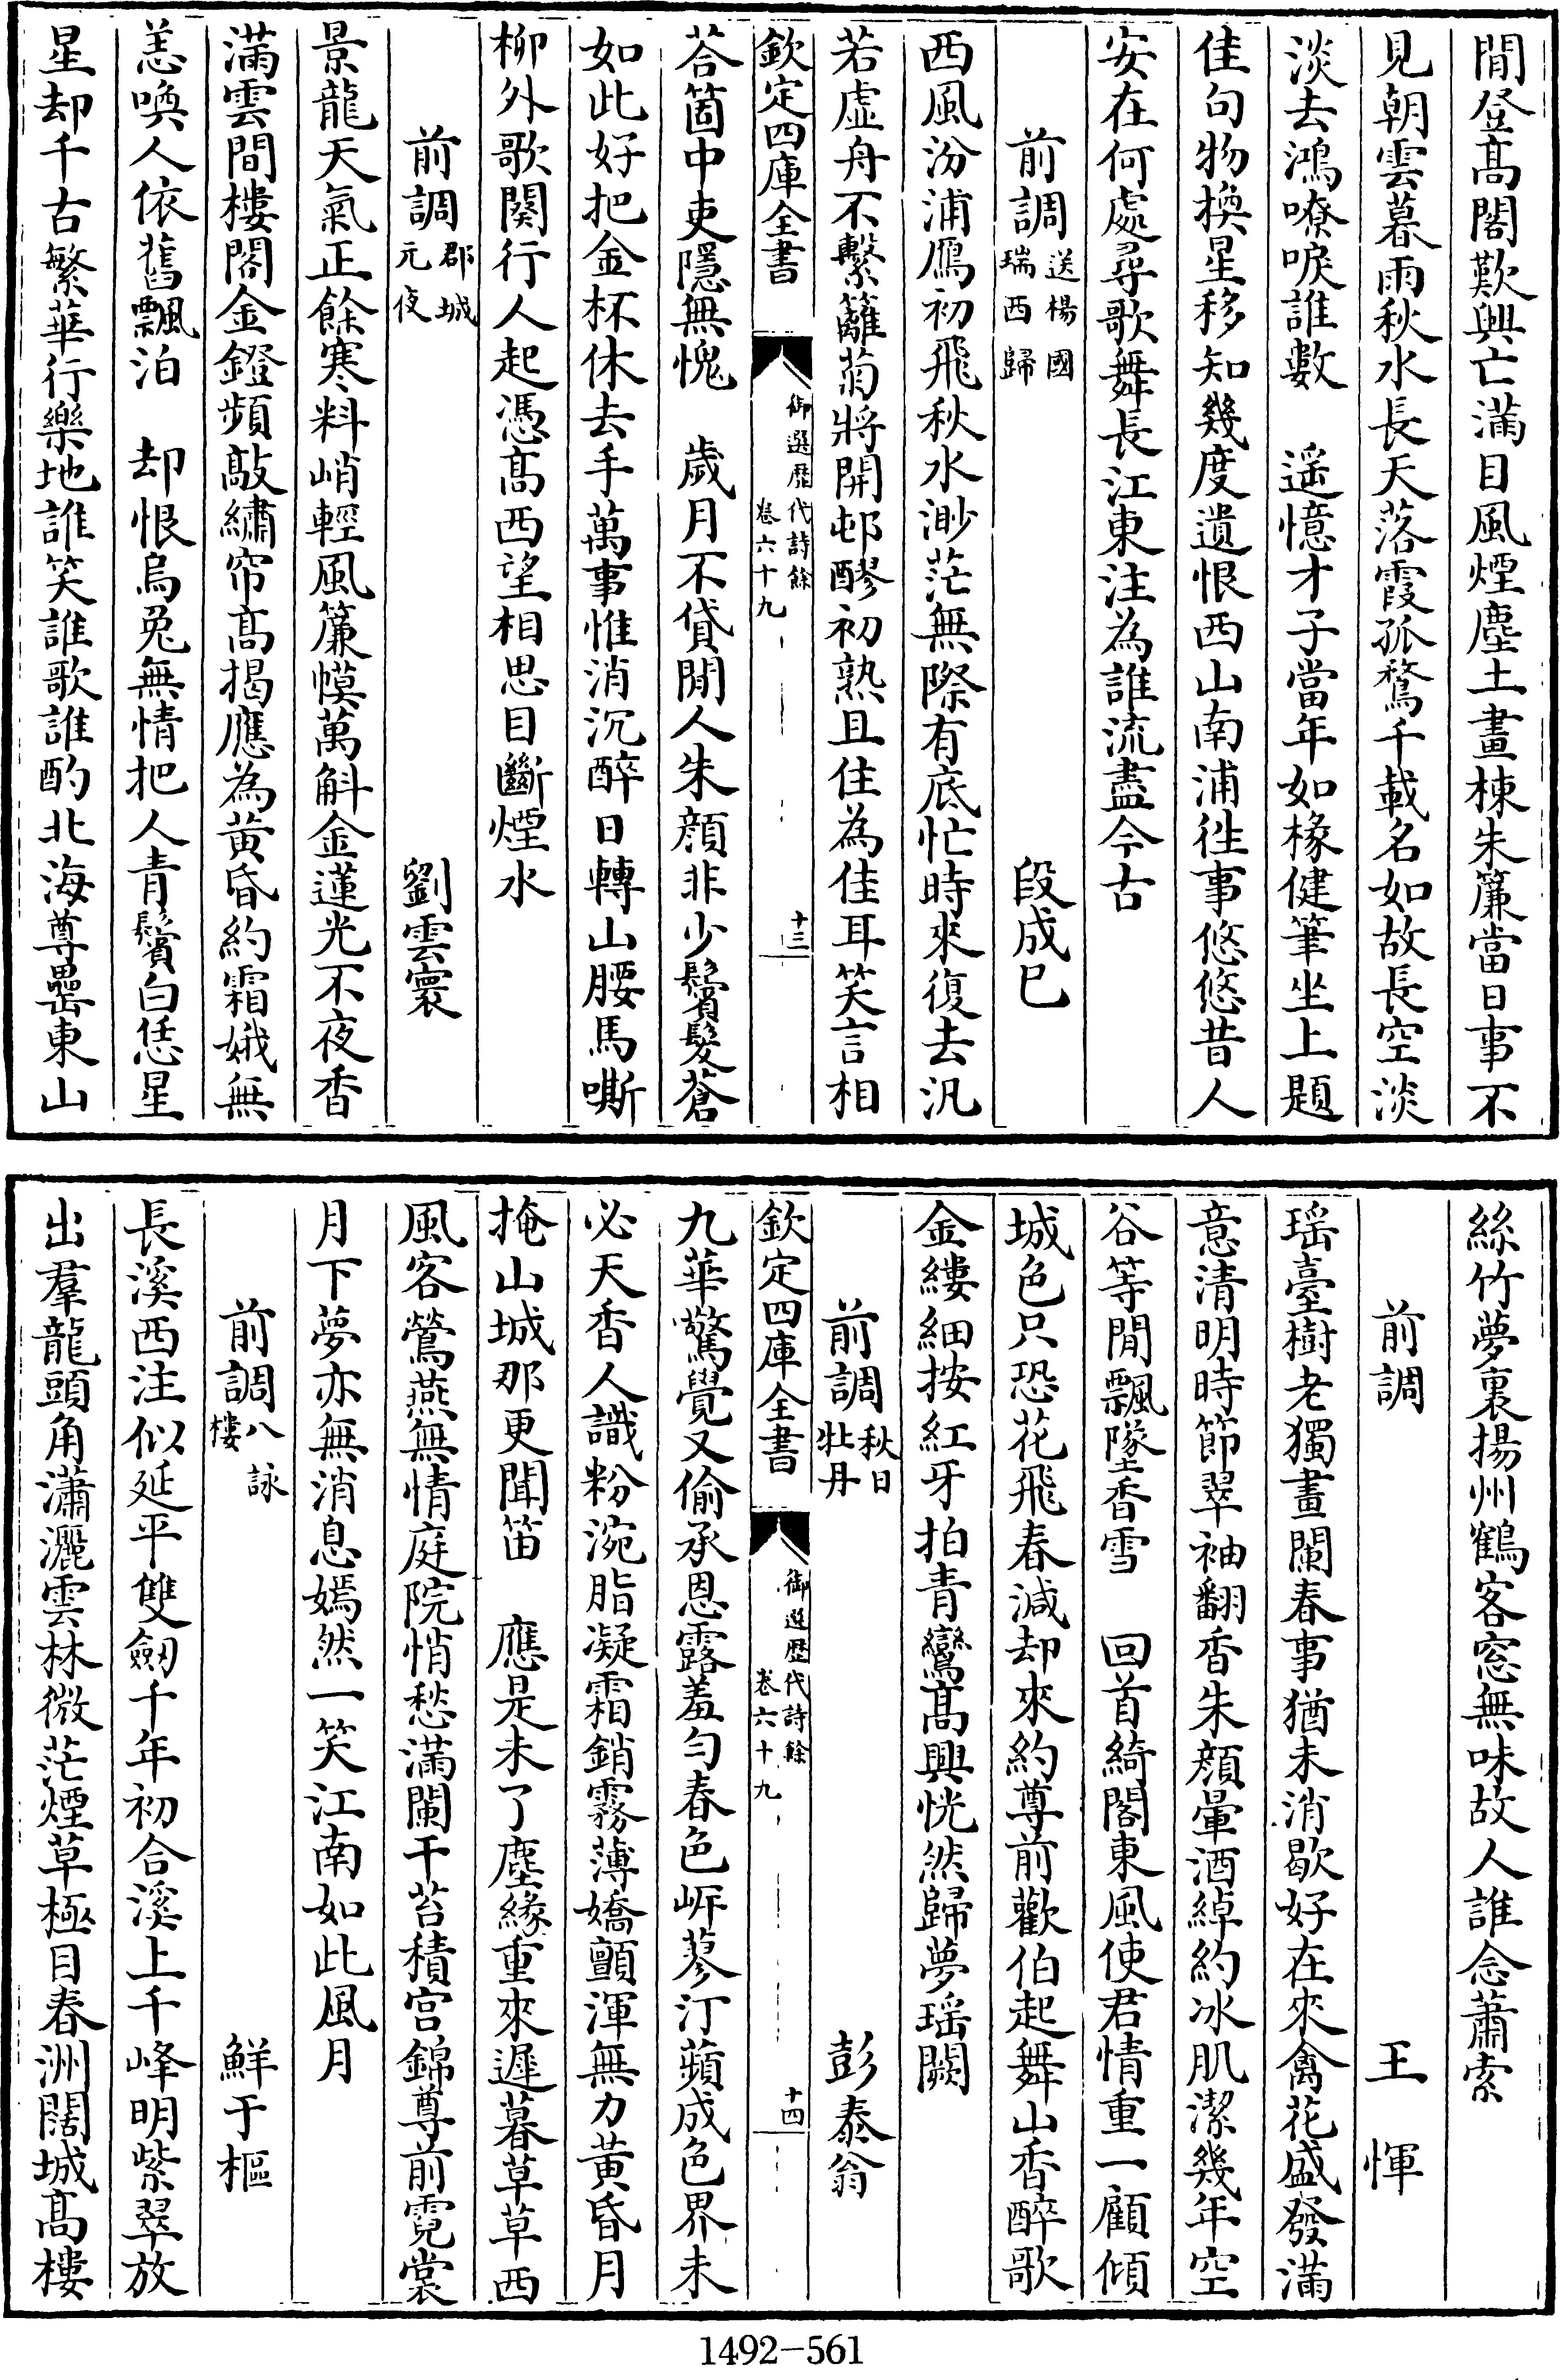 閒登髙閣歎興亡滿目風煙塵土畫棟朱簾當日事不
見朝雲暮雨秋水長天落霞孤鶩千載名如故長空淡
淡去鴻嘹唳誰數　遥憶才子當年如椽健筆坐上題
佳句物換星移知幾度遺恨西山南浦徃事悠悠昔人
安在何處尋歌舞長江東注為誰流盡今古
前調送楊國瑞西歸　段成巳
西風汾浦鴈初飛秋水渺茫無際有底忙時來復去汎
若虚舟不繫籬菊將開邨醪初熟且住為佳耳笑言相
欽定四庫全書　御選歷代詩餘卷六十九　十三
荅箇中吏隱無愧　歲月不貸閒人朱顔非少鬢髮蒼
如此好把金杯休去手萬事惟消沉醉日轉山腰馬嘶
柳外歌闋行人起憑髙西望相思目斷煙水
前調郡城元夜　劉雲寰
景龍天氣正餘寒料峭輕風簾幙萬斛金蓮光不夜香
滿雲間樓閣金鐙頻敲繡帘髙揭應為黄昏約霜娥無
恙喚人依舊飄泊　却恨烏兎無情把人青鬢白恁星
星却千古繁華行樂地誰笑誰歌誰酌北海尊罍東山
絲竹夢裏揚州鶴客窓無味故人誰念蕭索
前調　王惲
瑶臺樹老獨畫闌春事猶未消歇好在來禽花盛發滿
意清明時節翠袖翻香朱顔暈酒綽約冰肌潔幾年空
谷等閒飄墜香雪　回首綺閣東風使君情重一顧傾
城色只恐花飛春減却來約尊前歡伯起舞山香醉歌
金縷細按紅牙拍青鸞髙興恍然歸夢瑶闕
前調秋日牡丹　彭泰翁
欽定四庫全書　御選歷代詩餘卷六十九　十四
九華驚覺又偷承恩露羞勻春色岍蓼汀蘋成色界未
必天香人識粉涴脂凝霜銷霧薄嬌顫渾無力黄昏月
掩山城那更聞笛　應是未了塵緣重來遲暮草草西
風客鶯燕無情庭院悄愁滿闌干苔積宫錦尊前霓裳
月下夢亦無消息嫣然一笑江南如此風月
前調八詠樓　鮮于樞
長溪西注似延平雙劒千年初合溪上千峰明紫翠放
出羣龍頭角瀟灑雲林微茫煙草極目春洲闊城髙樓
1492-561